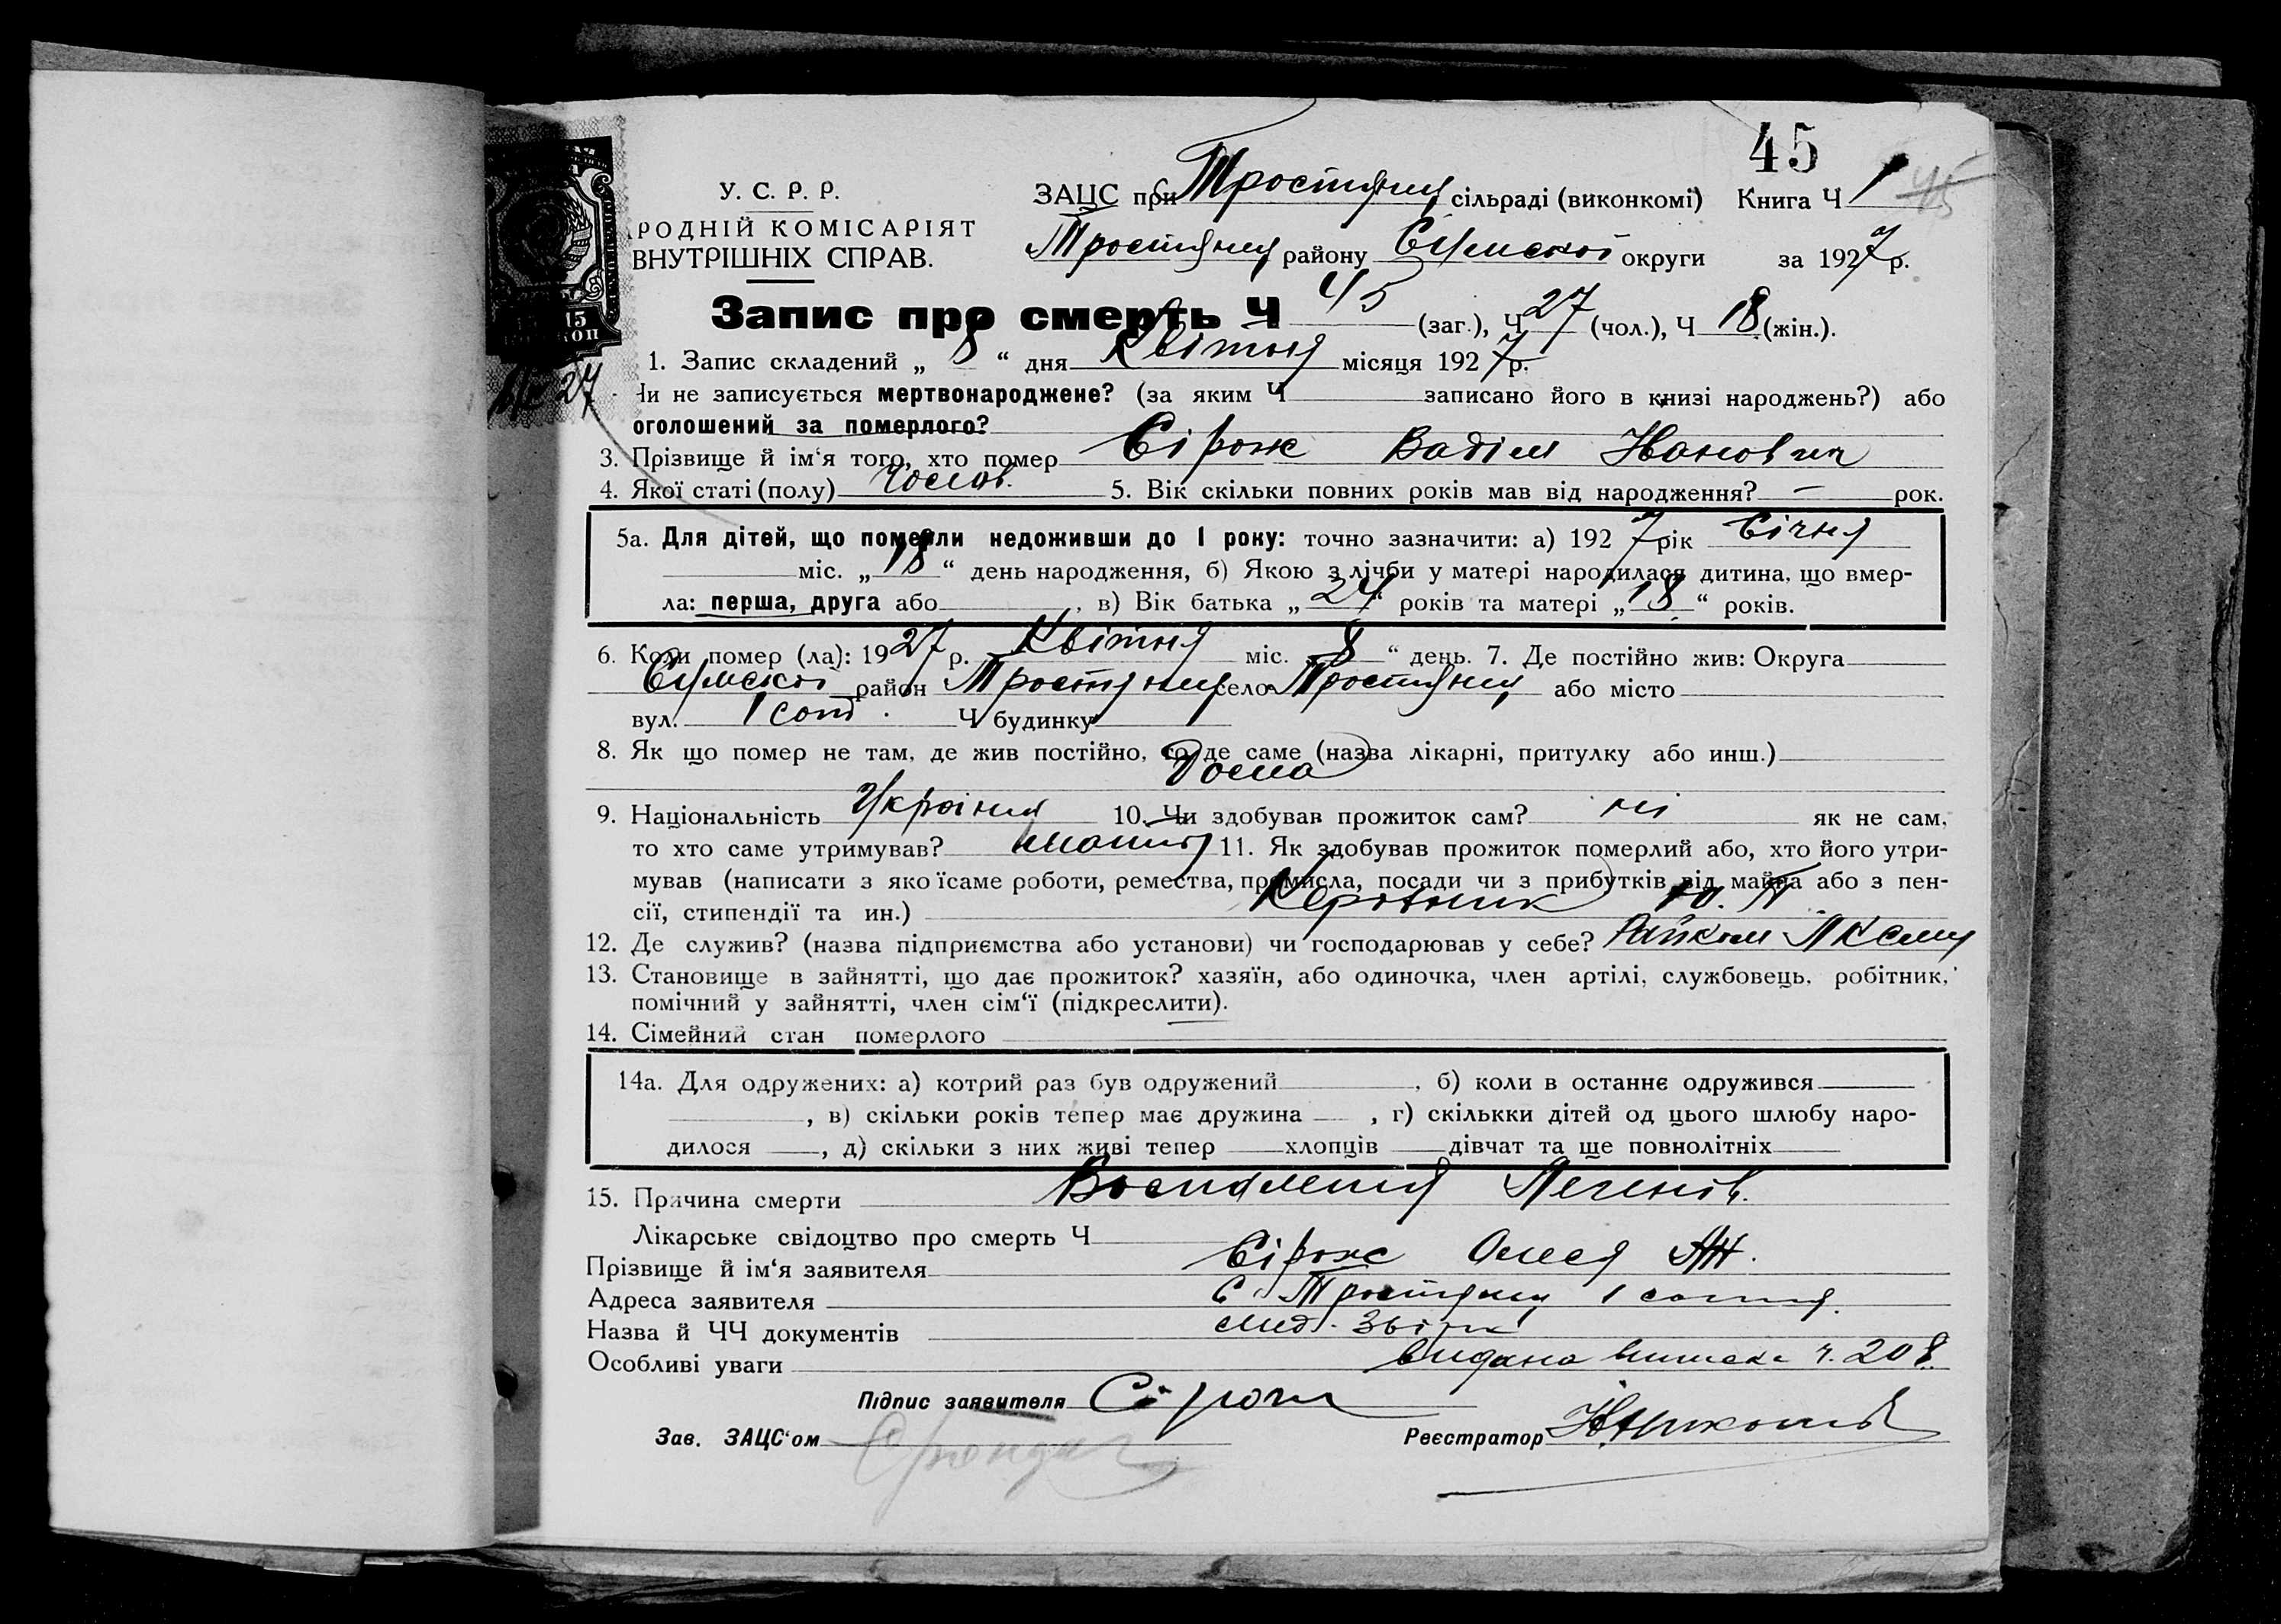 45
У. С. Р. Р.
РОДНІЙ КОМІСАРІЯТ
ВНУТРІШНІХ СПРАВ.
15
КОП
27
ЗАЦС при Тростянец сільраді (виконкомі) Книга Ч 1 45
Тростянец району Сумської округи за 1927 р.
Запис про смерть Ч 45 (заг.), Ч 27 (чол.), Ч 18 (жін.).
1. Запис складений „ 8 “ дня Квітня місяця 1927 р.
Чи не записується мертвонароджене? (за яким Ч записано його в книзі народжень?) або
оголошений за померлого?
3. Прізвище й ім‘я того, хто помер Сірож Вадім Иванович
4. Якої статі (полу) чолов. 5. Вік скільки повних років мав від народження? – рок.
5а. Для дітей, що померли недоживши до 1 року: точно зазначити: а) 1927 рік Січня
міс. „ 18 “ день народження, б) Якою з лічби у матері народилася дитина, що вмер-
ла: перша, друга або , в) Вік батька „ 24 “ років та матері „ 18 “ років.
6. Коли помер (ла): 1927 р. Квітня міс. „ 8 “ день. 7. Де постійно жив: Округа
Сумської район Тростянец село Тростянец або місто
вул. 1 сот. Ч будинку
8. Як що помер не там, де жив постійно, то де саме (назва лікарні, притулку або инш.)
Дома
9. Національність Україн 10. Чи здобував прожиток сам? ні як не сам,
то хто саме утримував? 11. Як здобував прожиток померлий або, хто його утри-
мував (написати з якоїсаме роботи, ремества, промисла, посади чи з прибутків від майна або з пен-
сії, стипендії та ин.) Керовник Ю. П.
12. Де служив? (назва підприємства або установи) чи господарював у себе? Райком ЛКСМУ
13. Становище в зайнятті, що дає прожиток? хазяїн, або одиночка, член артілі, службовець, робітник,
помічний у зайнятті, член сім‘ї (підкреслити).
14. Сімейний стан померлого
14а. Для одружених: а) котрий раз був одружений , б) коли в останнє одружився
, в) скільки років тепер має дружина , г) скількки дітей од цього шлюбу наро-
дилося , д) скільки з них живі тепер хлопців дівчат та ще повнолітніх
15. Причина смерти Воспаления Легенів.
Лікарське свідоцтво про смерть Ч
Прізвище й ім‘я заявителя Сірож Олеся
Адреса заявителя С. Тростянец 1 сотня.
Назва й ЧЧ документів
Особливі уваги видана виписка ч. 208.
Підпис заявителя Сірож
Зав. ЗАЦС‘ом
Реєстратор